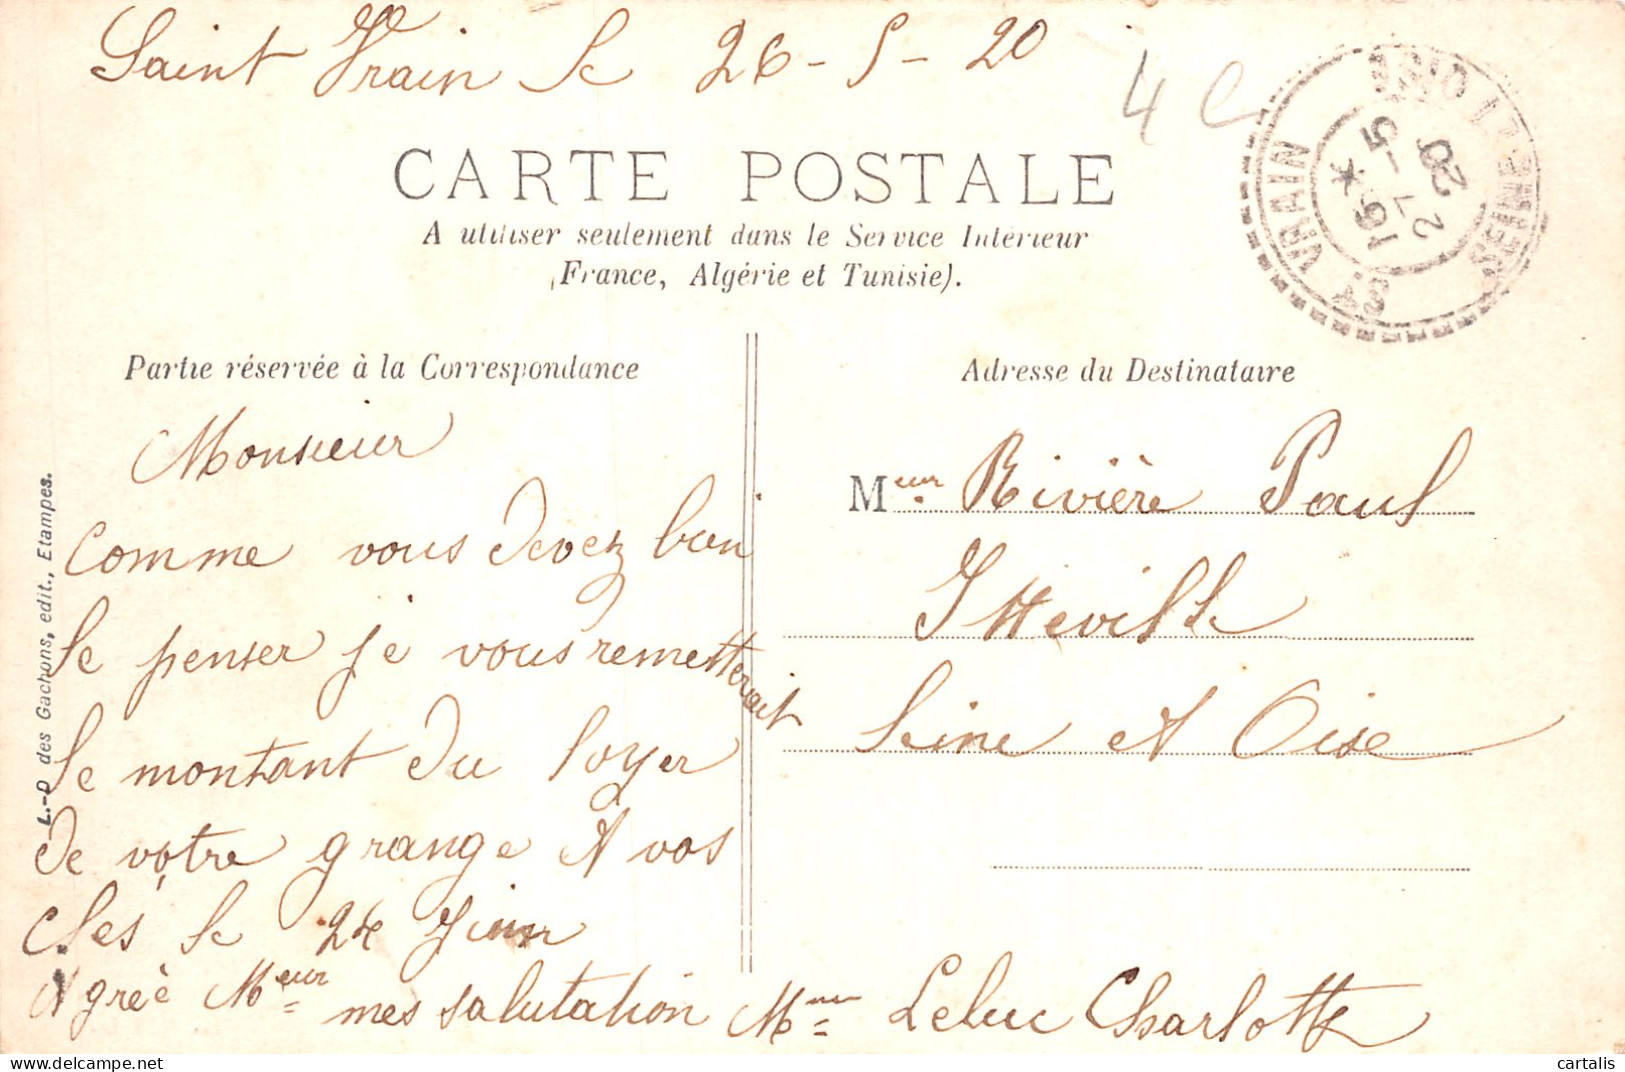 Saint Vrain le 26-5-20
4e
CARTE POSTALE
A utiliser seulement dans le Service Intérieur
(France, Algérie et Tunisie).
ST VRAIN
SEINE ET OISE
16 * 
27 - 5
20
Partie réservée à la Correspondance
Monsieur
Comme vous devez bien
le penser je vous remetterait
le montant du loyer
de votre grange et vos
clés le 24 Juin
Agreè Meur mes salutation Mme Leluc Charlotte
Adresse du Destinataire
Meur Rivière Paul
Itteville
Seine et Oise
L.-D des Gachons, edit., Etampes.
cartalis